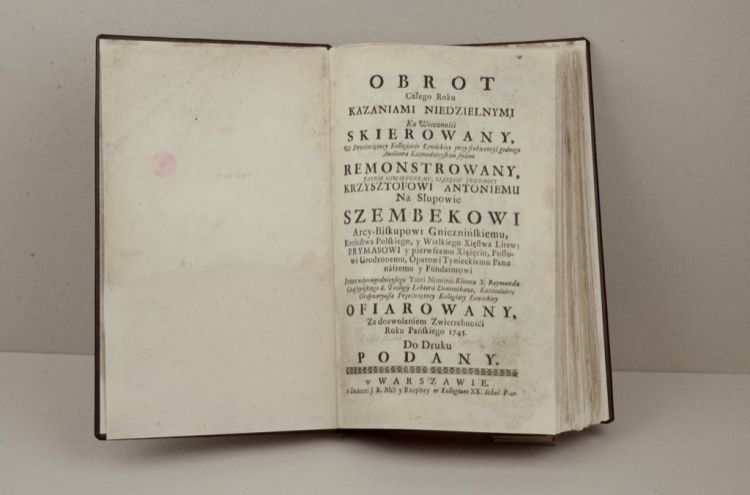 OBROT
Całego Roku
KAZANIAMI NIEDZIELNYMI
Ku Wieczności
SKIEROWANY,
W Przeświętney Kollegiacie Łowickiey przy frekwencyi godnego
Auditora Kaznodzieyskim stylem
REMONSTROWANY,
JAŚNIE OSWIECONEMU, XIĄZĘCIU JEGOMSCI
KRZYSZTOFOWI ANTONIEMU
Na Słupowie
SZEMBEKOWI
Arcy-Biskupowi Gnieznińskiemu,
Krolestwa Polskiego, y Wielkiego Xięstwa Litew:
PRYMASOWI y pierwszemu Xiążęciu, Posło-
wi Urodzonemu, Opatowi Tynieckiemu Panu
nászemu y Fundatorowi
Przez Tomi Nominis Klienta X. Raymunda
S. Teologij Lektora Dominikana, Kaznodzieię
Ordynaryusza Przeświętney Kollegiaty Łowickiey
OFIAROWANY,
Za dozwoleniem Zwierzchności
Roku Pańskiego 1745.
Do Druku
PODANY.
w WARSZAWIE,
w Drukarni J. K. Mći y Rzeplitey w Kollegium XX. Schol. Piar.